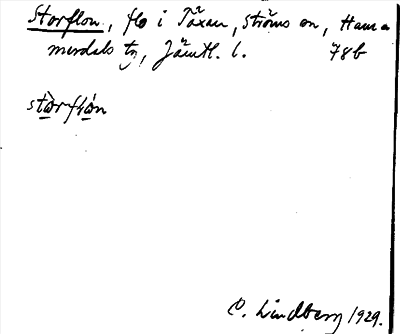 Storflon, flo i Täxan, Ströms sn, Ham-
merdals tg, Jämtl. l. 78b
stɷ̀rflɷ́n
C. Lindberg 1929.